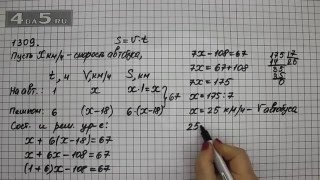 4DA5.RU
1309.
S = V · t
Пусть x км/ч – скорость автобуса,
t, ч V, км/ч S, км
На авт.: 1 x x·1=x
Пешком: 6 (x-18) 6·(x-18)
67
Сост. и реш. ур-е:
x + 6(x-18) = 67
x + 6x - 108 = 67
(1+6)x - 108 = 67
7x - 108 = 67
7x = 67 + 108
7x = 175
x = 175 : 7
x = 25 км/ч – V автобуса
25
175 7
14 25
35
35
0